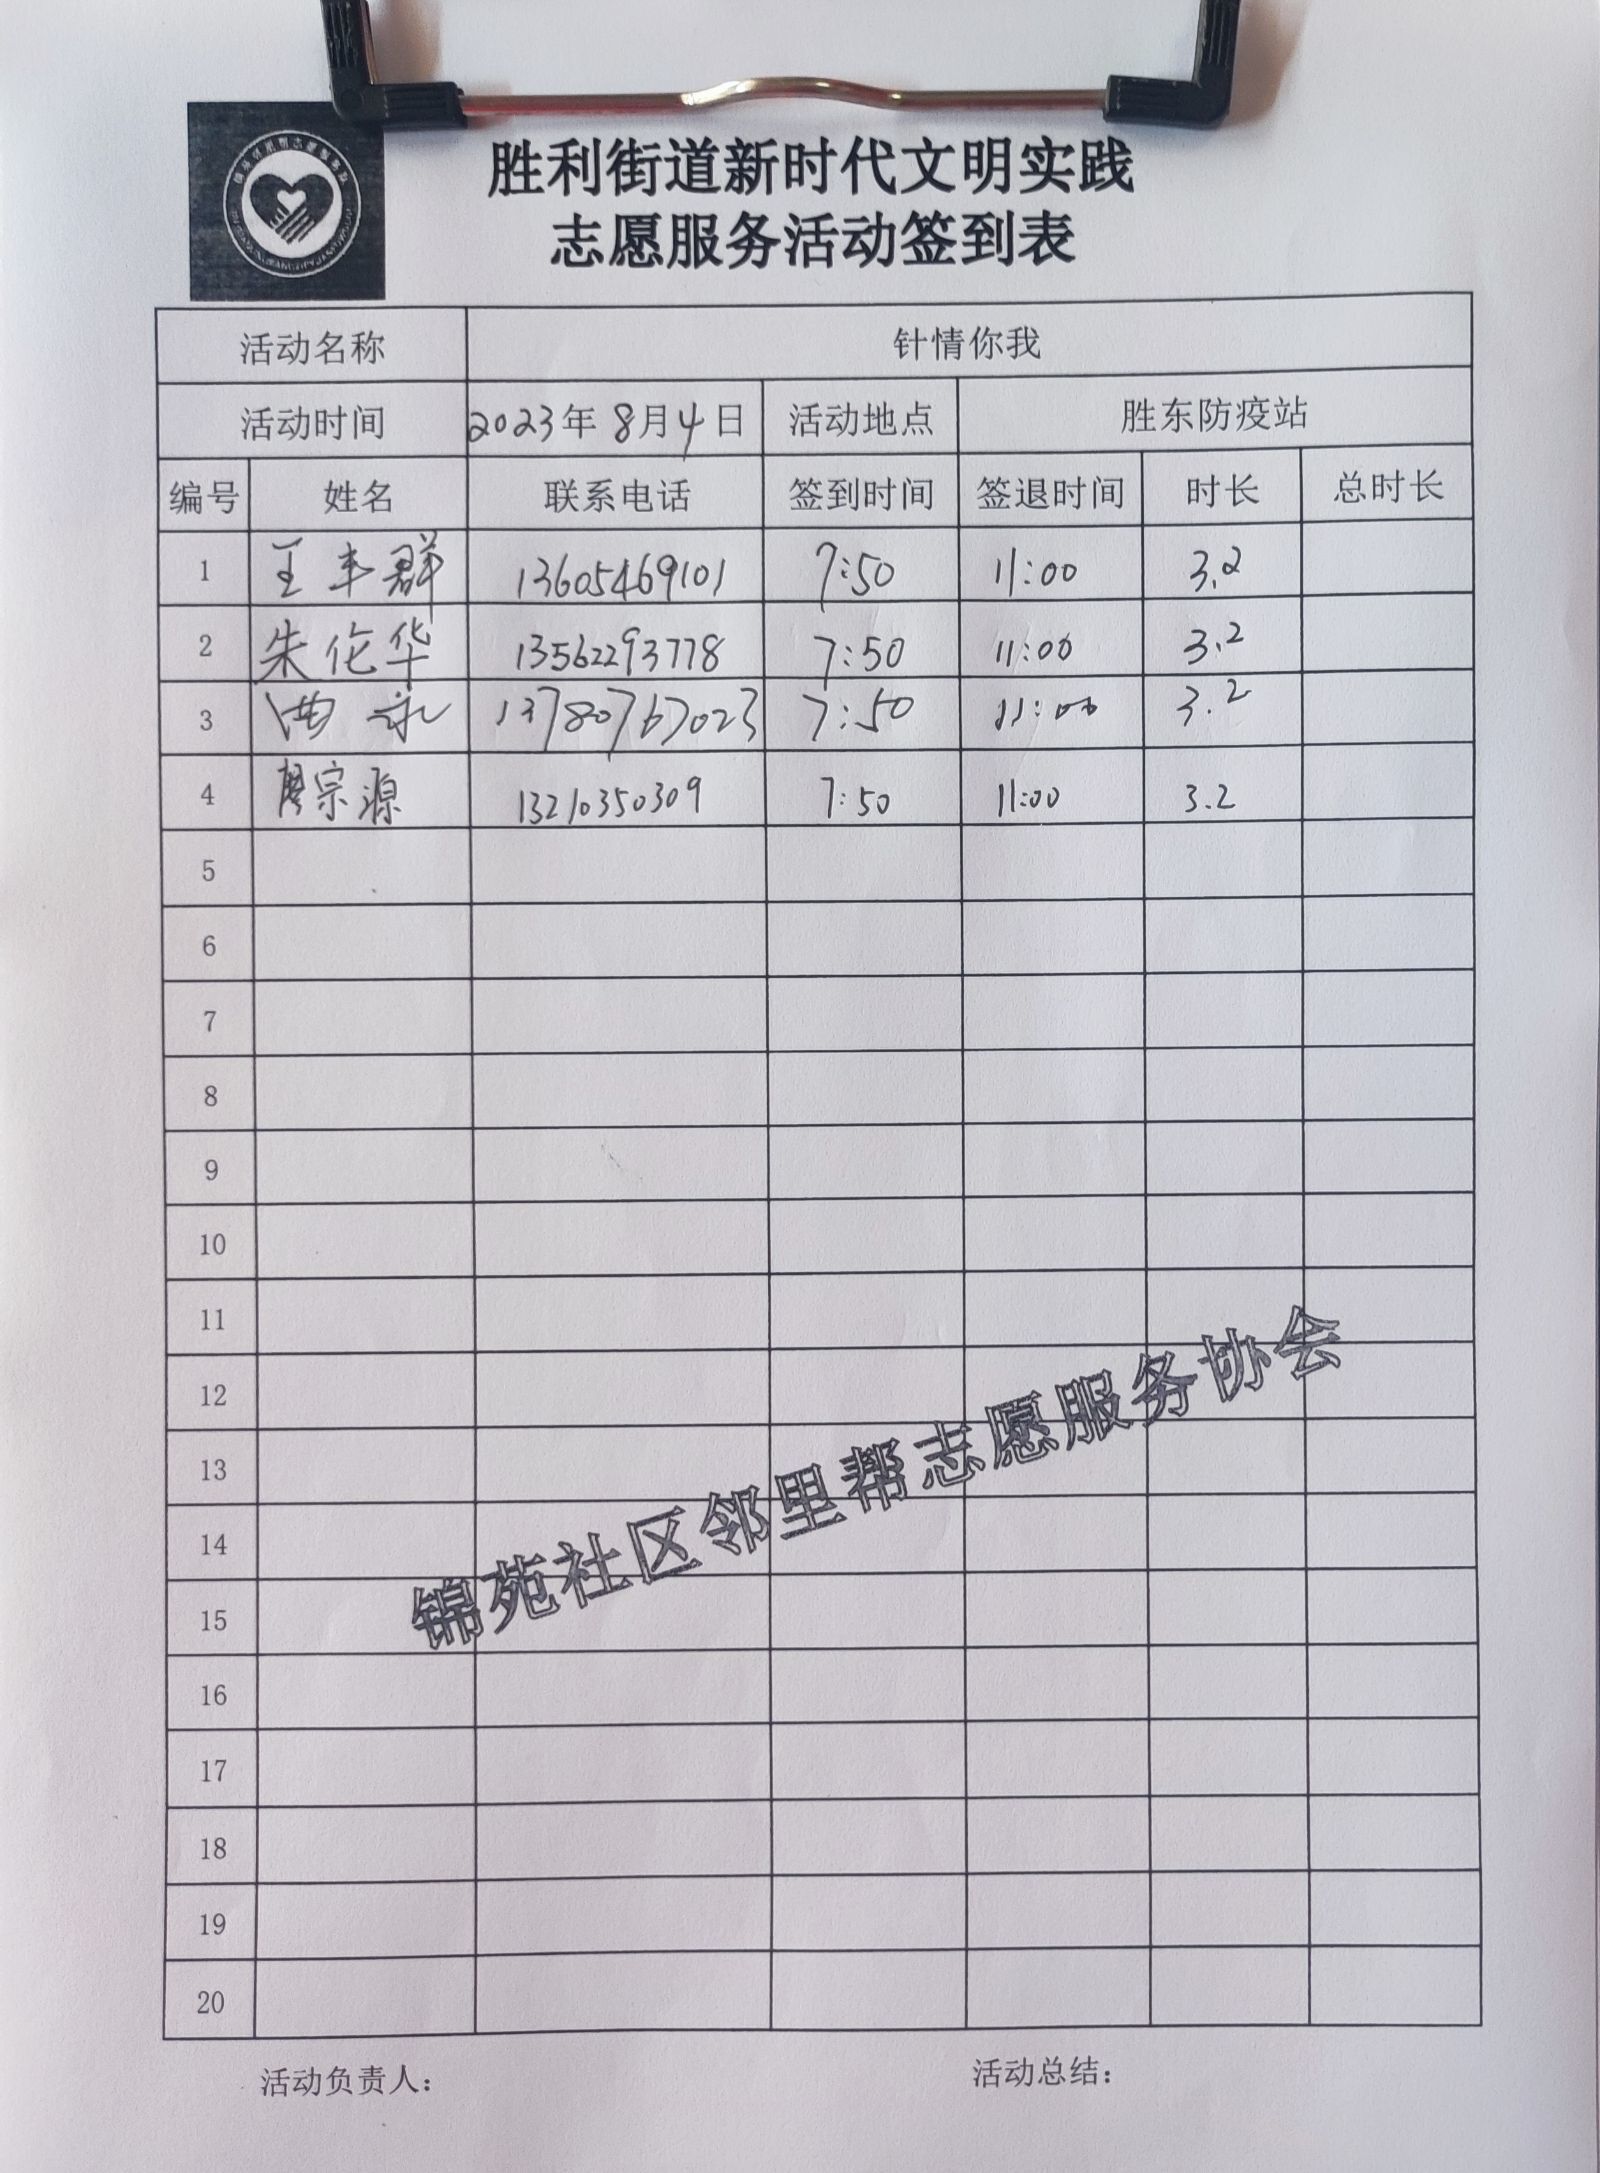 胜利街道新时代文明实践
志愿服务活动签到表
活动名称 针情你我
活动时间 2023年8月4日 活动地点 胜东防疫站
编号 姓名 联系电话 签到时间 签退时间 时长 总时长
1 王丰群 13605469101 7:50 11:00 3.2
2 朱伦华 13562293778 7:50 11:00 3.2
3 曲永 13780767023 7:50 11:00 3.2
4 宗源 13210350309 7:50 11:00 3.2
5
6
7
8
9
10
11
12
13
14
15
16
17
18
19
20
锦苑社区邻里帮志愿服务协会
活动负责人： 活动总结：